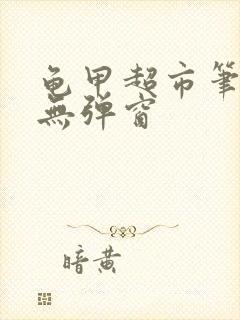 龟甲超市笔
無弹窗
暗黄